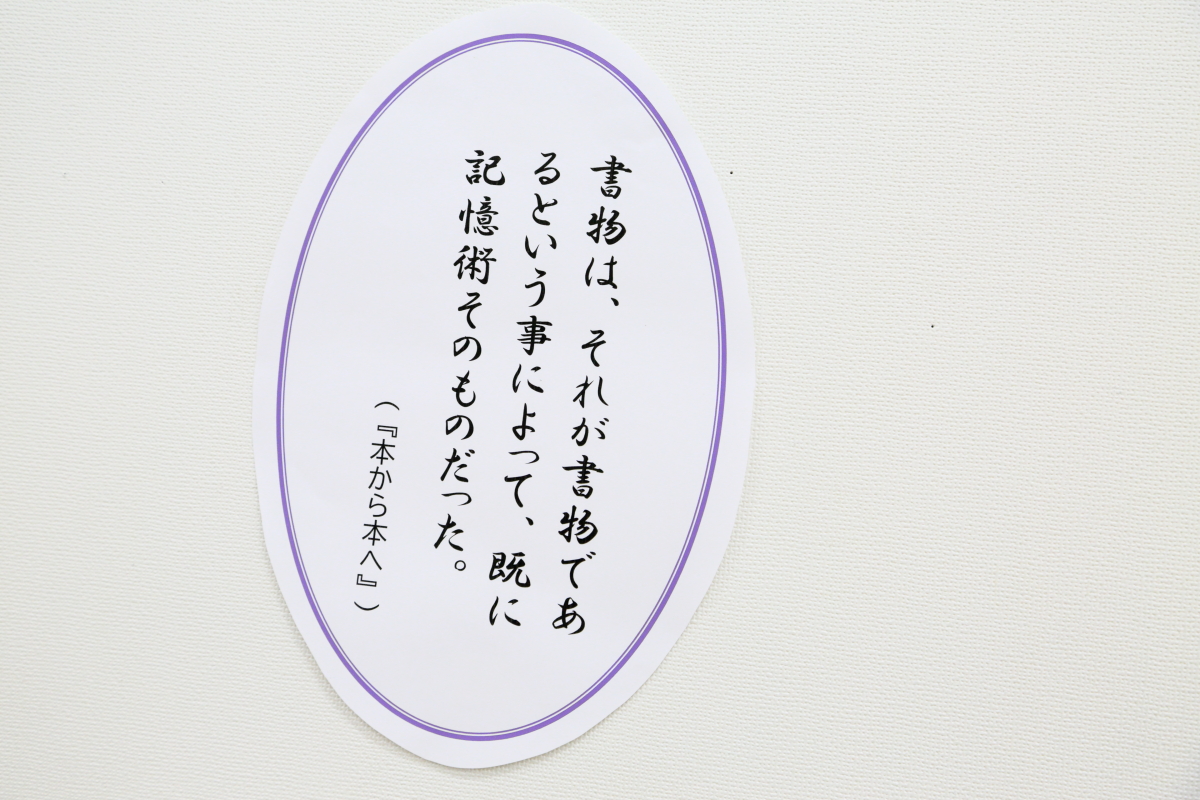 書物は、それが書物であ
るという事によって、既に
記憶術そのものだった。
（『本から本へ』）